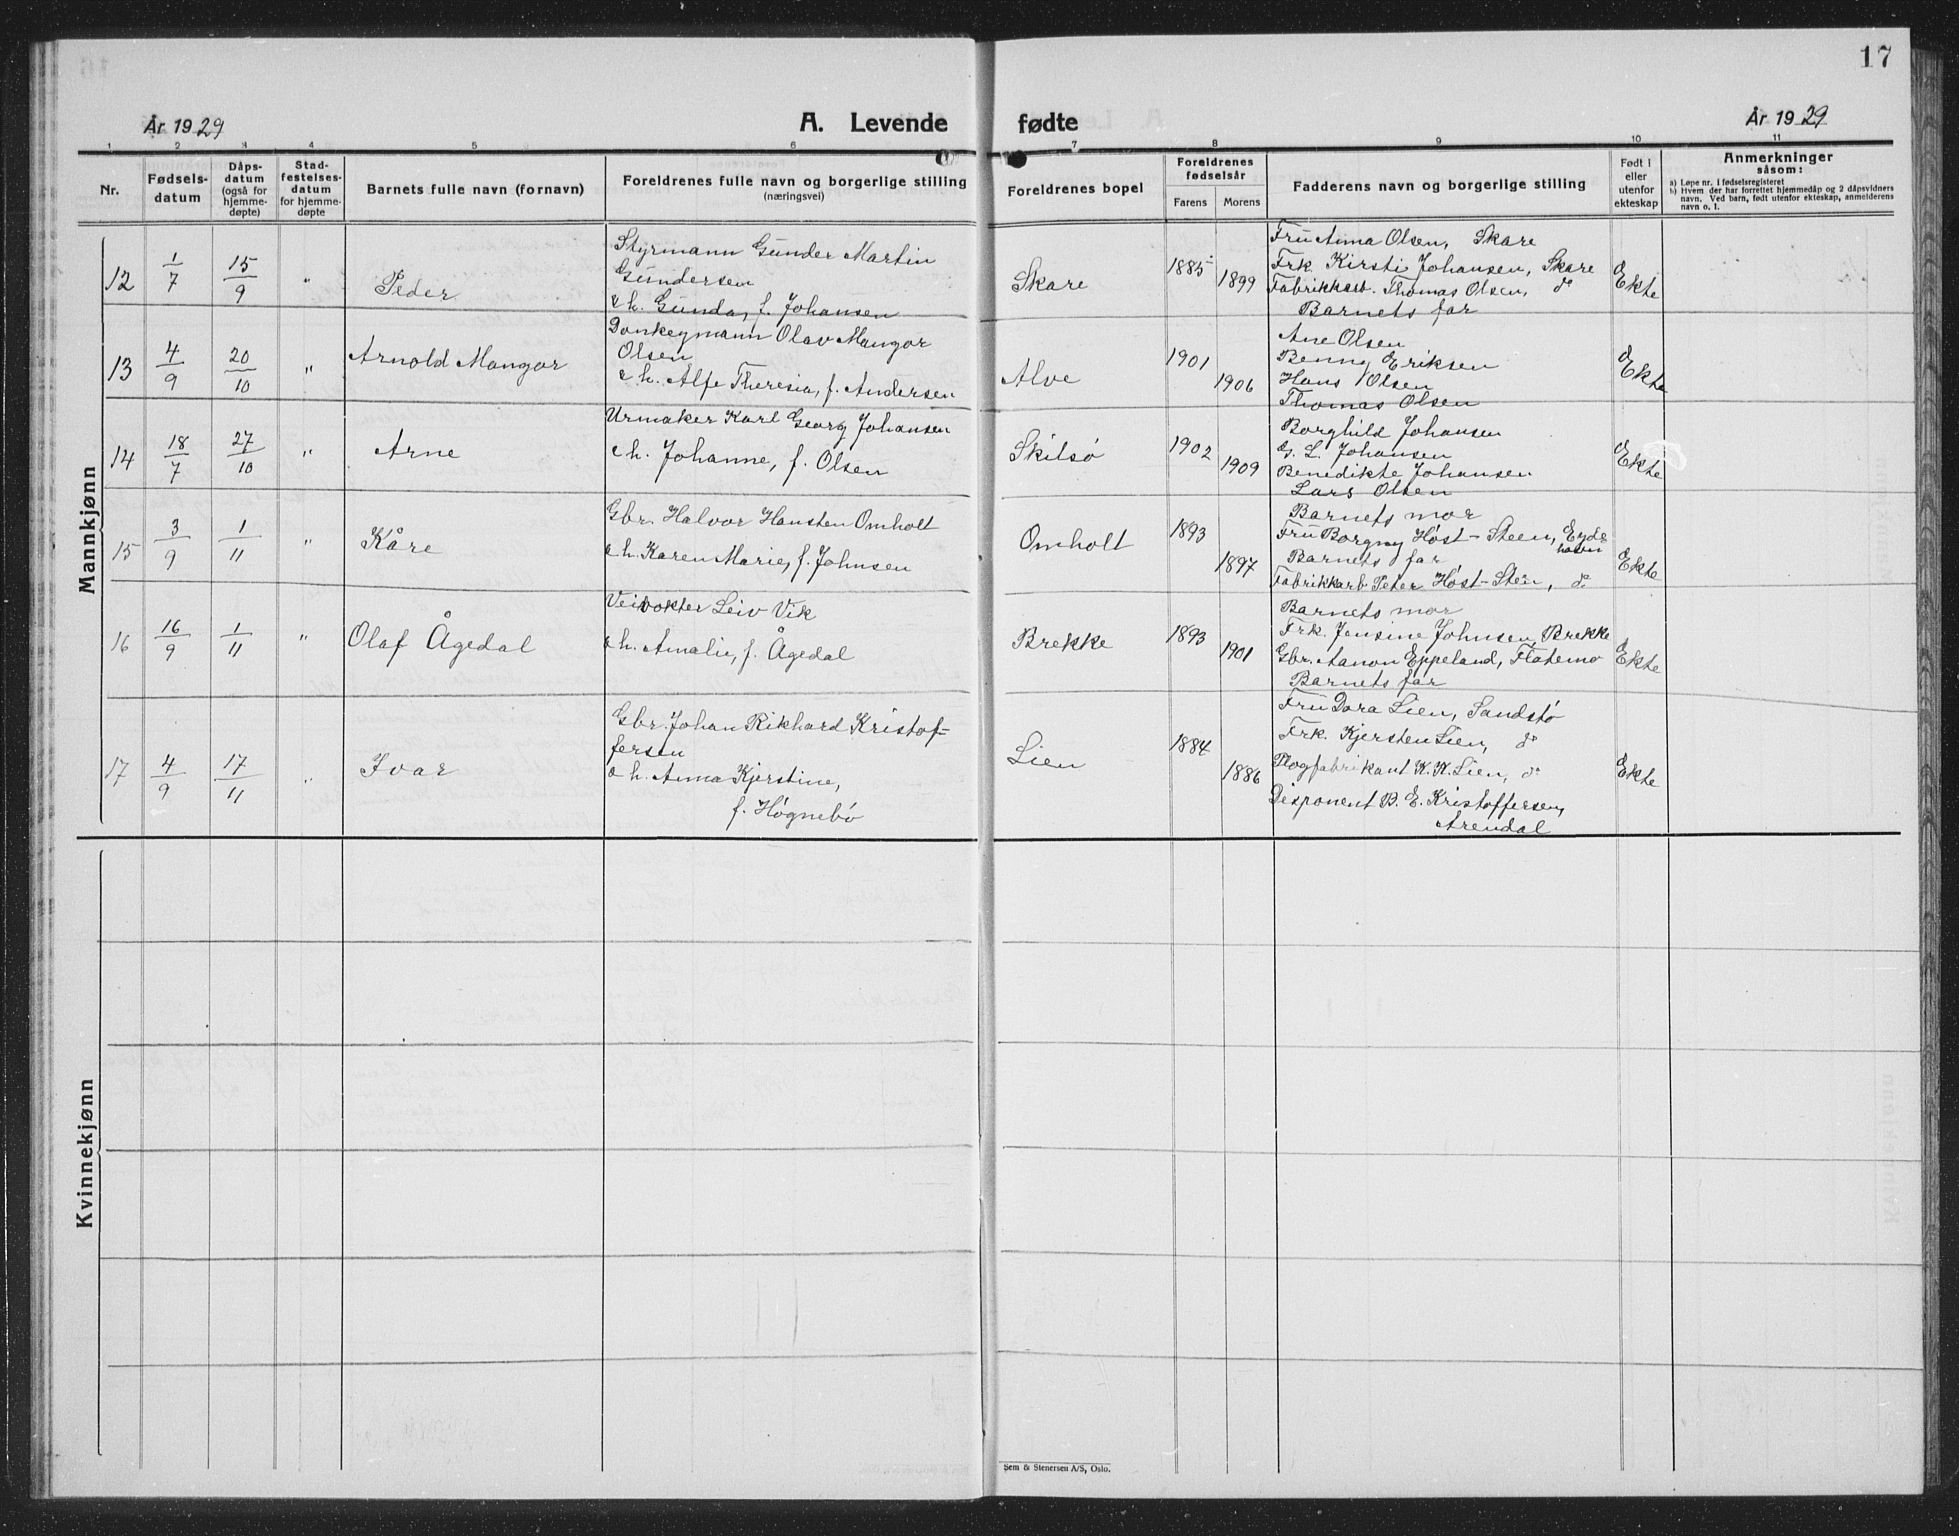 17
År 1929
A. Levende fødte
År 1929
1 2 3 4 5 6 7 8 9 10 11
Nr.
Fødsels-
datum
Dåps-
datum
(også for
hjemme-
døpte)
Stad-
festelses-
datum
for hjemme-
døpte
Barnets fulle navn (fornavn)
Foreldrenes fulle navn og borgerlige stilling
(næringsvei)
Foreldrenes bopel
Foreldrenes
fødselsår
Farens
Morens
Fadderens navn og borgerlige stilling
Født i
eller
utenfor
ekteskap
Anmerkninger
såsom:
a) Løpe nr. i fødselsregisteret
b) Hvem der har forrettet hjemmedåp og 2 dåpsvidners
navn. Ved barn, født utenfor ekteskap, anmelderens
navn o. l.
Mannkjønn
12 1/7 15/9 " Peder
Styrmann Gunder Martin
Gundersen
o h. Gunda, f. Johansen
Skare 1885 1899
Fru Anna Olsen, Skare
Frk. Kirsti Johansen, Skare
Fabrikkarb. Thomas Olsen, do
Barnets far
Ekte
13 4/9 20/10 " Arnold Mangor
Donkeymann Olav Mangor
Olsen
o h. Alfe Theresia, f. Andersen
Alve 1901 1906
Ane Olsen
Benny Eriksen
Hans Olsen
Thomas Olsen
Ekte
14 18/7 27/10 " Arne
Urmaker Karl Georg Johansen
o h. Johanne, f. Olsen
Skilsø 1902 1909
Borghild Johansen
G. L. Johansen
Benedikte Johansen
Lars Olsen
Ekte
15 3/9 1/11 " Kåre
Gbr. Halvor Hansten Omholt
o h. Karen Marie, f. Johnsen
Omholt 1893 1897
Barnets mor
Fru Borgny Høst-Steen, Eyde
havn
Barnets far
Fabrikkarb Peter Høst-Sten, do
Ekte
16 16/9 1/11 " Olaf Ågedal
Veivokter Leiv Vik
o h. Amalie, f. Ågedal
Brekke 1893 1901
Barnets mor
Frk. Jensine Johnsen, Brekke
Gbr. Aanon Eppeland, Flatemo
Barnets far
Ekte
17 4/9 17/11 " Ivar
Gbr. Johan Rikhard Kristof-
fersen
o h. Anna Kjerstine,
f. Høgnebø
Lien 1884 1886
Fru Dora Lien, Sandstø
Frk. Kjersten Lien, do
Plogfabrikant K. K. Lien, do
Disponent B. E. Kristoffersen,
Arendal
Ekte
Kvinnekjønn
Sem & Stenersen A/S, Oslo.